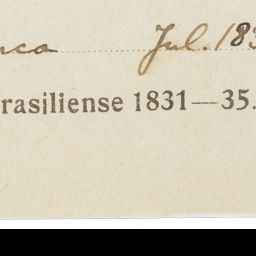 Jul. 183
rasiliense 1831—35.